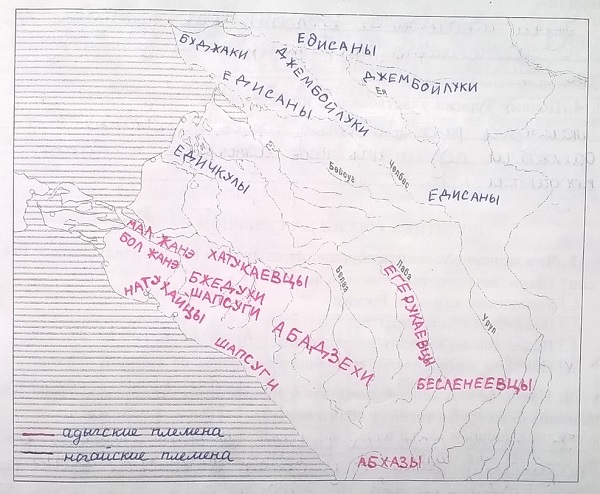 ЕДИСАНЫ
БУДЖАКИ
ДЖЕМБОЙЛУКИ
ДЖЕМБОЙЛУКИ
Ея
ЕДИСАНЫ
ЕДИЧКУЛЫ
Бейсуг
Челбас
ЕДИСАНЫ
МАЛ ЖАНЭ
ХАТУКАЕВЦЫ
БОЛ ЖАНЭ
БЖЕДУХИ
ШАПСУГИ
НАТУХАЙЦЫ
Белая
Лаба
ЕГЕРУКАЕВЦЫ
Уруп
АБАДЗЕХИ
ШАПСУГИ
БЕСЛЕНЕЕВЦЫ
адыгские племена
ногайские племена
АБХАЗЫ